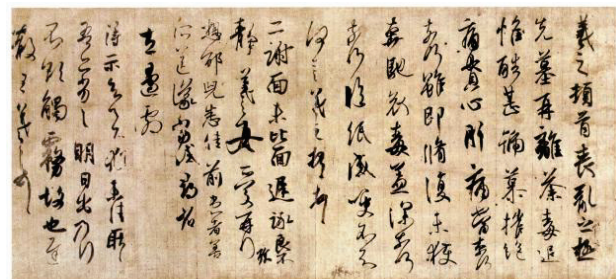 羲之頓首喪亂之極
先墓再離荼毒追
惟酷甚號慕摧絕
痛貫心肝痛當奈何
奈何雖即脩復未獲
奔馳哀毒益深奈何
奈何臨紙感哽不知
何言羲之頓首頓首
二謝面未比面遲詠良
靜羲之女愛再拜
想邵兒悉佳前患者善
左邊劇
得示知足下猶未佳耿
耿吾亦劣劣明日出乃行
不欲觸霧故也遲
散王羲之頓首